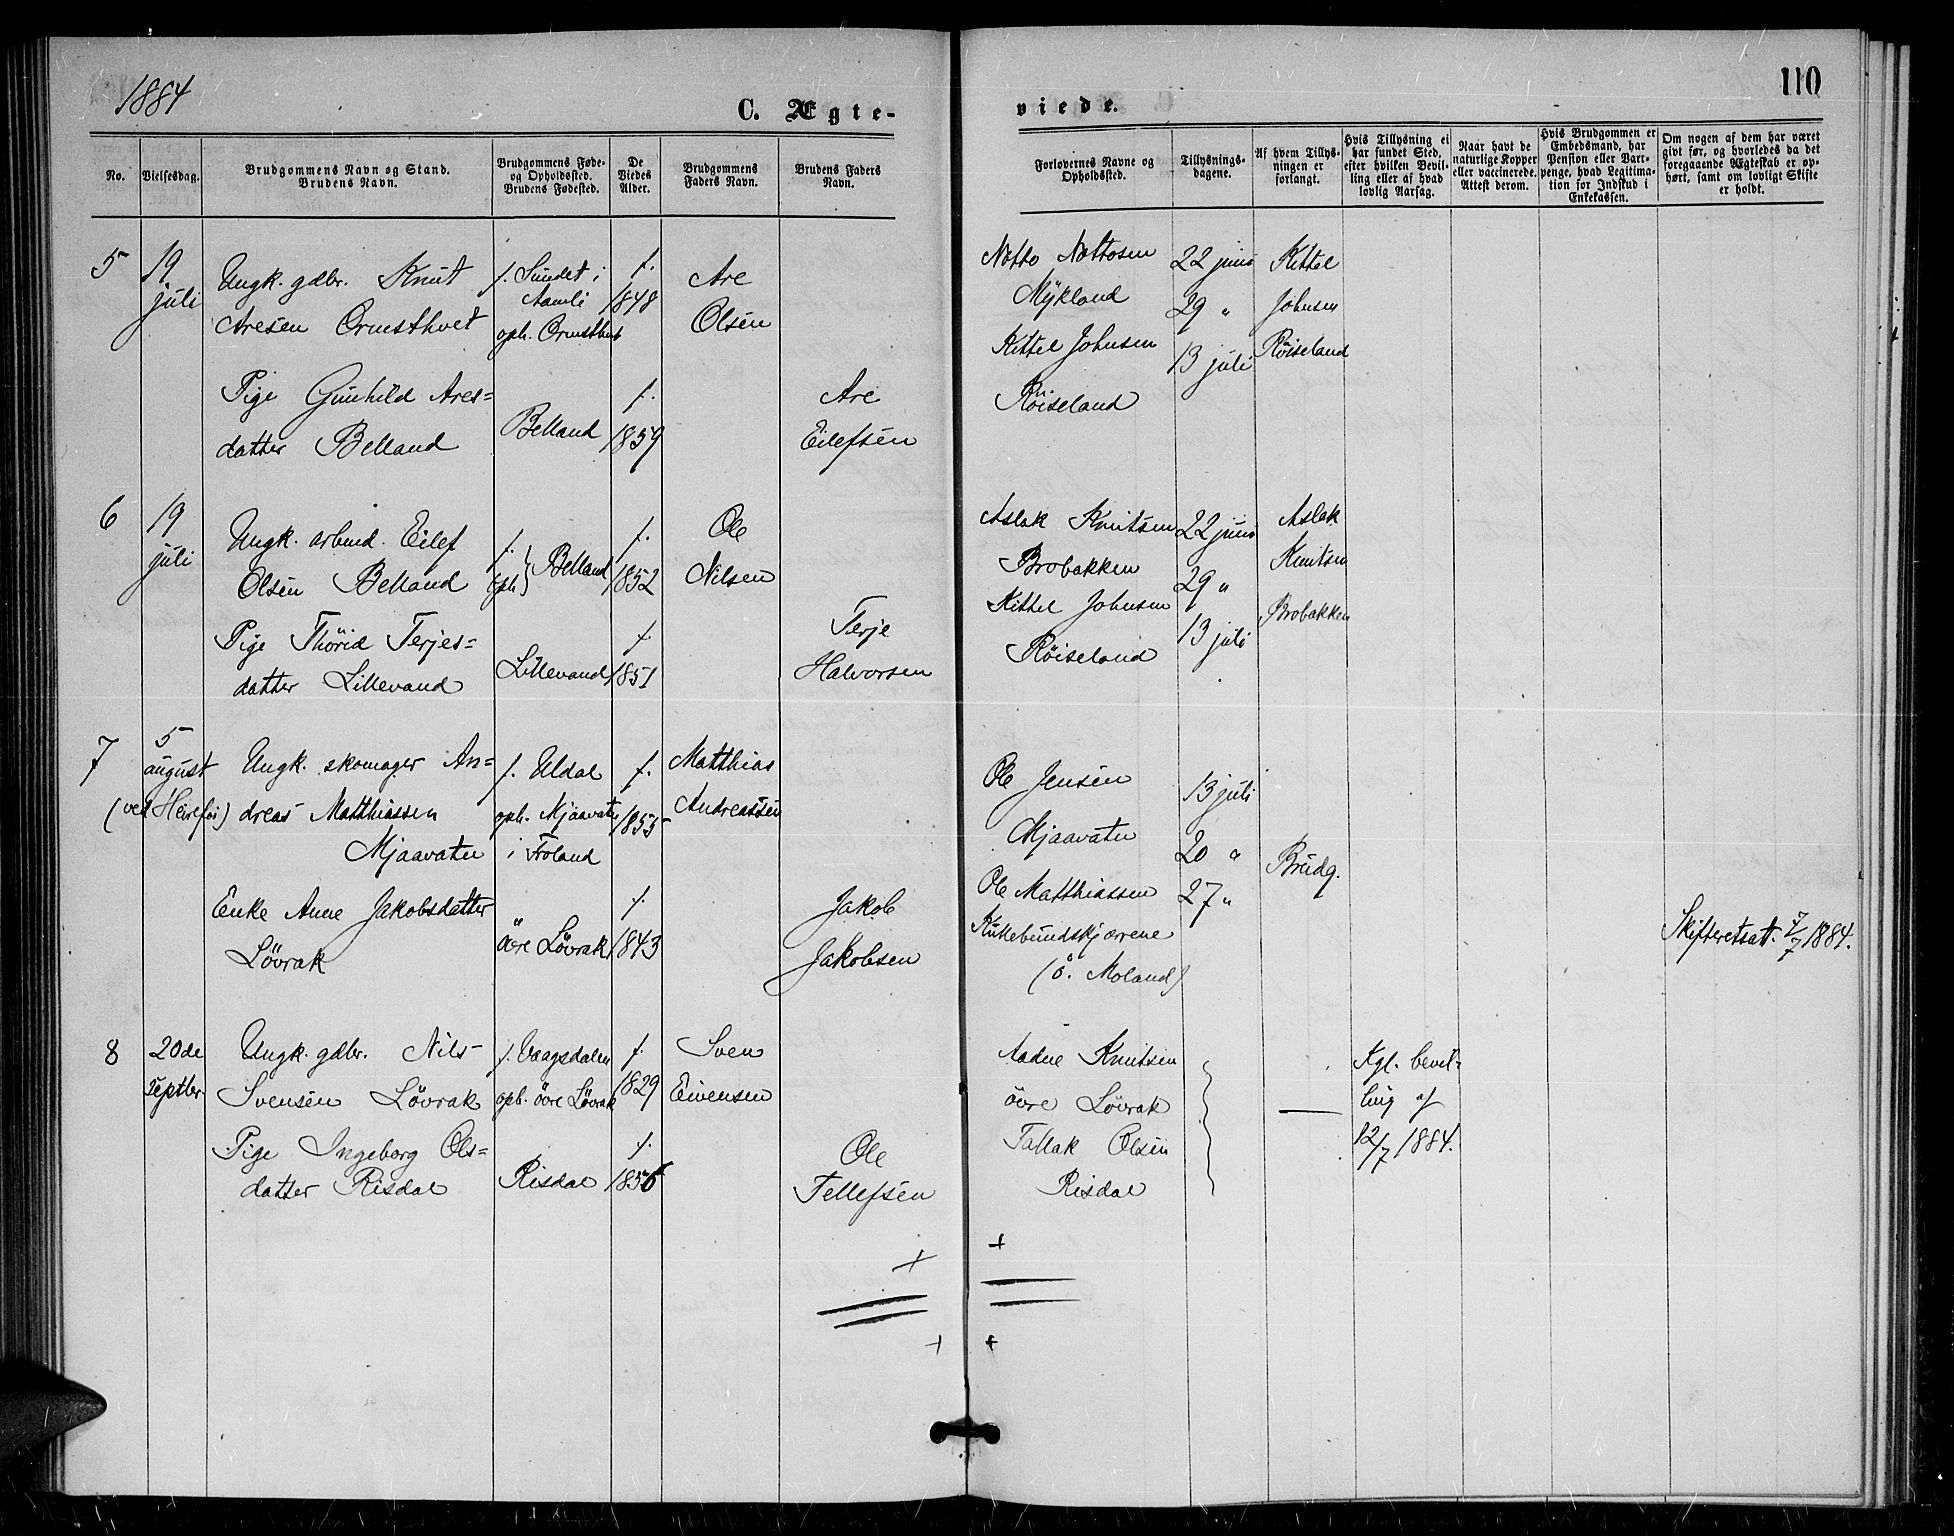 1884
C. Ægte-
No.
Vielsesdag.
Brudgommens Navn og Stand.
Brudens Navn.
Brudgommens Føde-
og Opholdssted.
Brudens Fødested.
De
Viedes
Alder.
Brudgommens
Faders Navn.
Brudens Faders
Navn.
5
19
juli
Ungk. gdbr. Knut
Aresen Ormsthvet
f. Sundet i
Aamli
oph. Ormsthvet
f.
1848
Are
Olsen
Pige Gunhild Ares=
datter Belland
Belland
f.
1859
Are
Eilefsen
6
19
juli
Ungk. arbmd. Eilef
Olsen Belland
f.
oph } Belland
f.
1852
Ole
Nilsen
Pige Thorid Terjes=
datter Lillevand
Lillevand
f.
1851
Terje
Halvorsen
7
5
august
(ved Heirefos)
Ungk. skomager An=
dreas Matthiassen
Mjaavatn
f. Uldal
oph. Mjaavatn
i Froland
f.
1855
Matthias
Andreassen
Enke Anne Jakobsdatter
Lövrak
övre Lövrak
f.
1843
Jakob
Jakobsen
8
20de
Septbr.
Ungk. gdbr. Nils
Svensen Lövrak
f. Vaagsdalen
oph. övre Lövrak
f.
1829
Sven
Eivensen
Pige Ingeborg Ols=
datter Risdal
Risdal
f.
1856
Ole
Tellefsen
110
viede.
Forlovernes Navne og
Opholdssted.
Tillysnings-
dagene.
Af hvem Tillys-
ningen er
forlangt.
Hvis Tillysning ei
har fundet Sted,
efter hvilken Bevil-
ling eller af hvad
lovlig Aarsag.
Naar havt de
naturlige Kopper
eller vaccinerede.
Attest derom.
Hvis Brudgommen er
Embedsmand, har
Pension eller Vart-
penge, hvad Legitima-
tion for Indskud i
Enkekassen.
Om nogen af dem har været
givt før, og hvorledes da det
foregaaende Ægteskab er op-
hørt, samt om lovligt Skifte
er holdt.
Notto Nottosen
Mykland
Kittel Johnsen
Röiseland
22 juni
29 "
13 juli
Kittel
Johnsen
Röiseland
Aslak Knutsen
Brobakken
Kittel Johnsen
Röiseland
22 juni
29 "
13 juli
Aslak
Knutsen
Brobakken
Ole Jensen
Mjaavatn
Ole Matthiassen
(ö. Moland)
13 juli
20 "
27 "
Brudg.
Skifteretsatt. 7/7 1884.
Aadne Knutsen
övre Lövrak
Tallak Olsen
Risdal
Kgl. bevil-
ling af
12/7 1884.